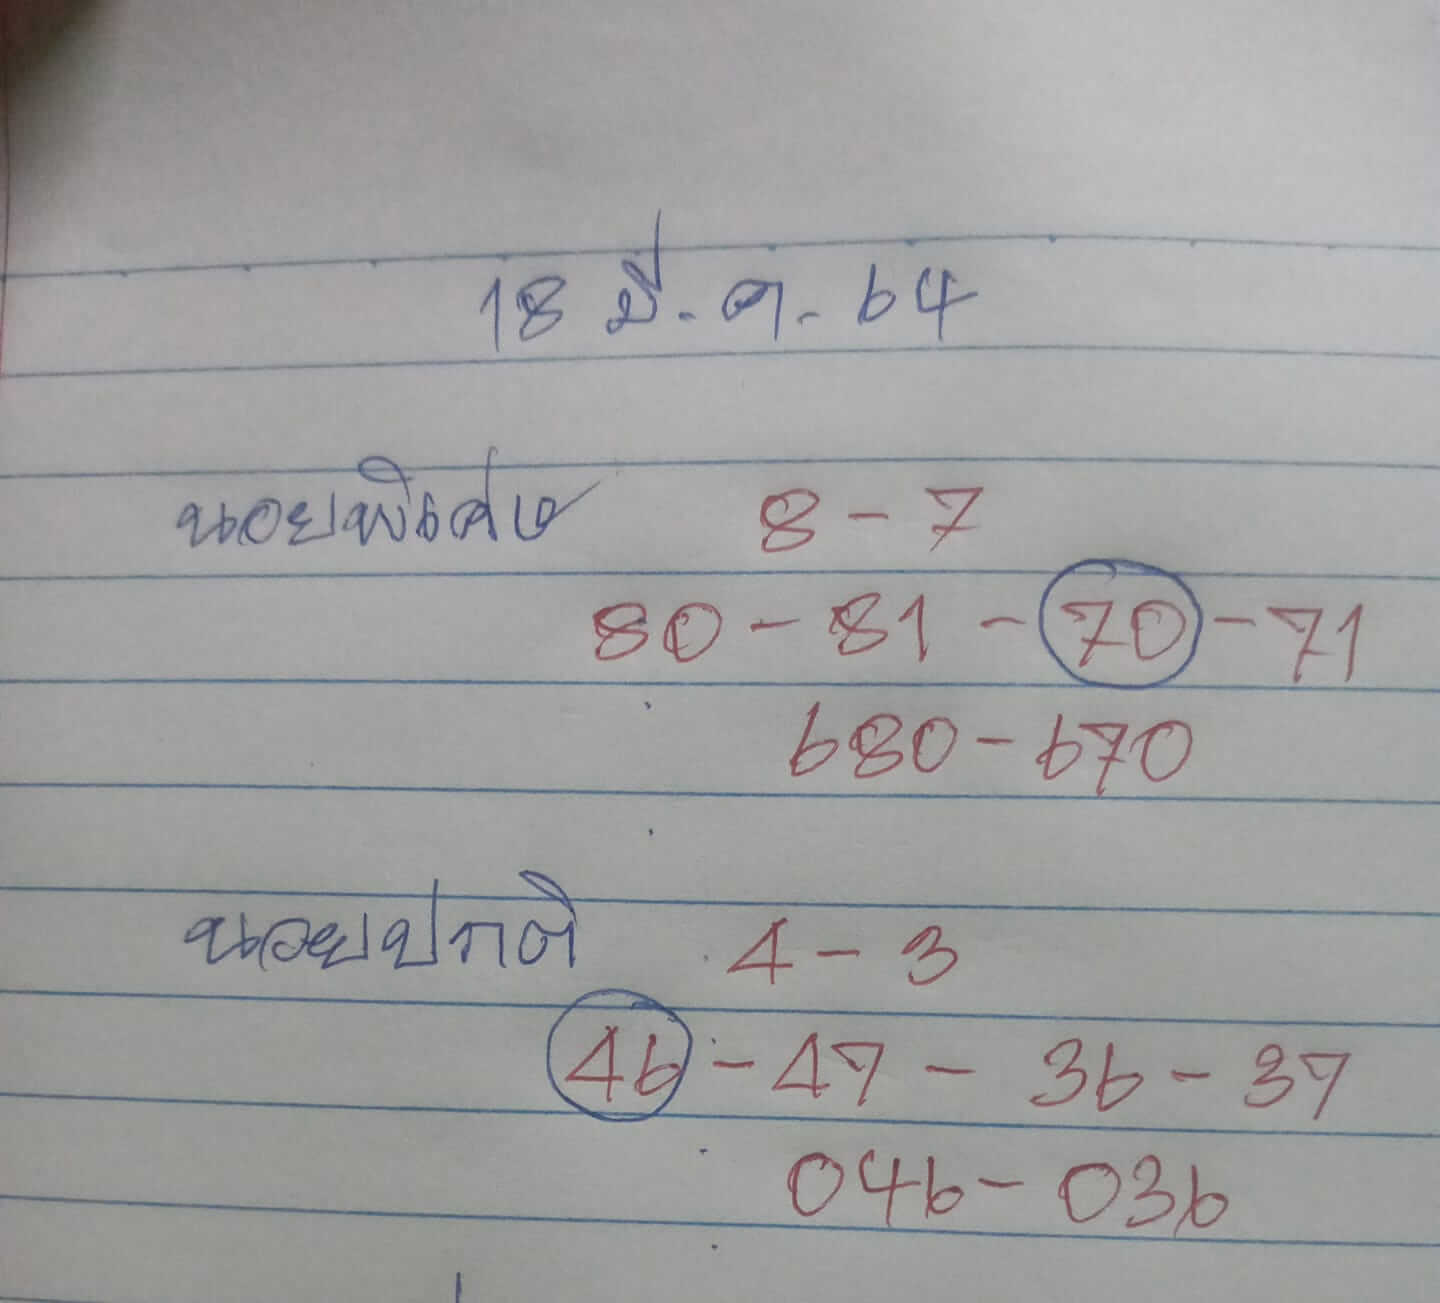 18 มี.ค. 64
นอยพิเศษ 8-7
80-81-70-71
680-670
นอยปกติ 4-3
46-47-36-37
046-036